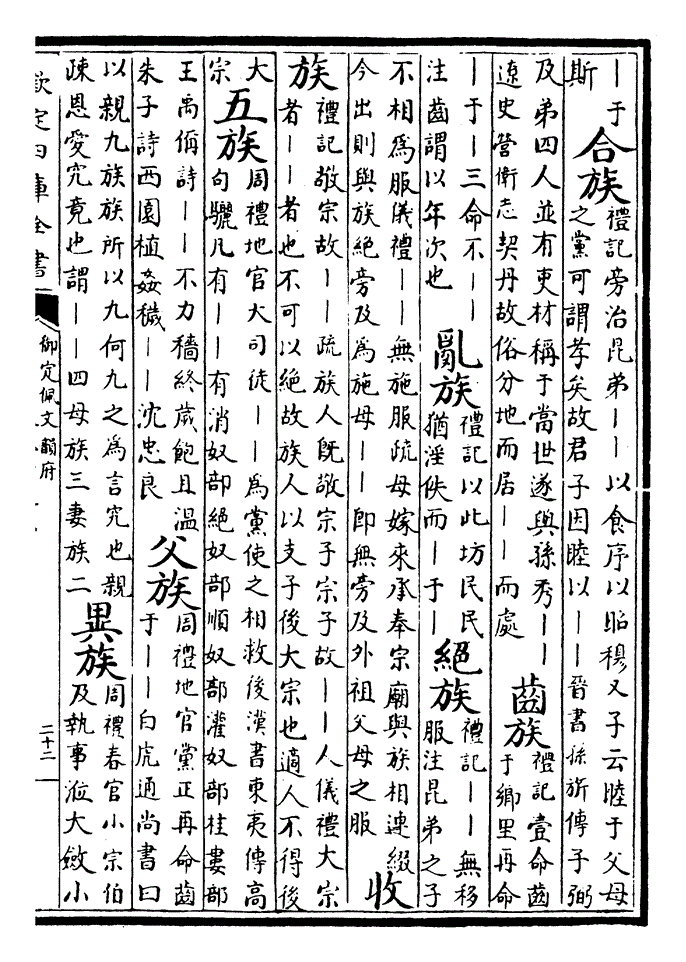 ｜于
斯
合族
禮記旁治昆弟｜｜以食序以昭穆又子云睦于父母
之黨可謂孝矣故君子因睦以｜｜晉書孫旂傳子弼
及弟四人並有吏材稱于當世遂與孫秀｜｜
遼史營衛志契丹故俗分地而居｜｜而處
齒族
禮記壹命齒
于鄉里再命
｜于｜三命不｜｜
注齒謂以年次也
亂族
禮記以此坊民民
猶淫佚而｜于｜
絕族
禮記｜｜無移
服注昆弟之子
不相為服儀禮｜｜無施服疏母嫁來承奉宗廟與族相連綴
今出則與族絕旁及為施母｜｜即無旁及外祖父母之服
收
族
禮記敬宗故｜｜疏族人既敬宗子宗子故｜｜人儀禮大宗
者｜｜者也不可以絕故族人以支子後大宗也適人不得後
大
宗
五族
周禮地官大司徒｜｜為黨使之相救後漢書東夷傳高
句驪凡有｜｜有消奴部絕奴部順奴部灌奴部桂婁部
王禹偁詩｜｜不力穡終歲飽且溫
朱子詩西園植姦穢｜｜沈忠良
父族
周禮地官黨正再命齒
于｜｜白虎通尚書曰
以親九族族所以九何九之為言究也親
疎恩愛究竟也謂｜｜四母族三妻族二
異族
周禮春官小宗伯
及執事涖大斂小
欽定四庫全書
御定佩文韻府
二十二